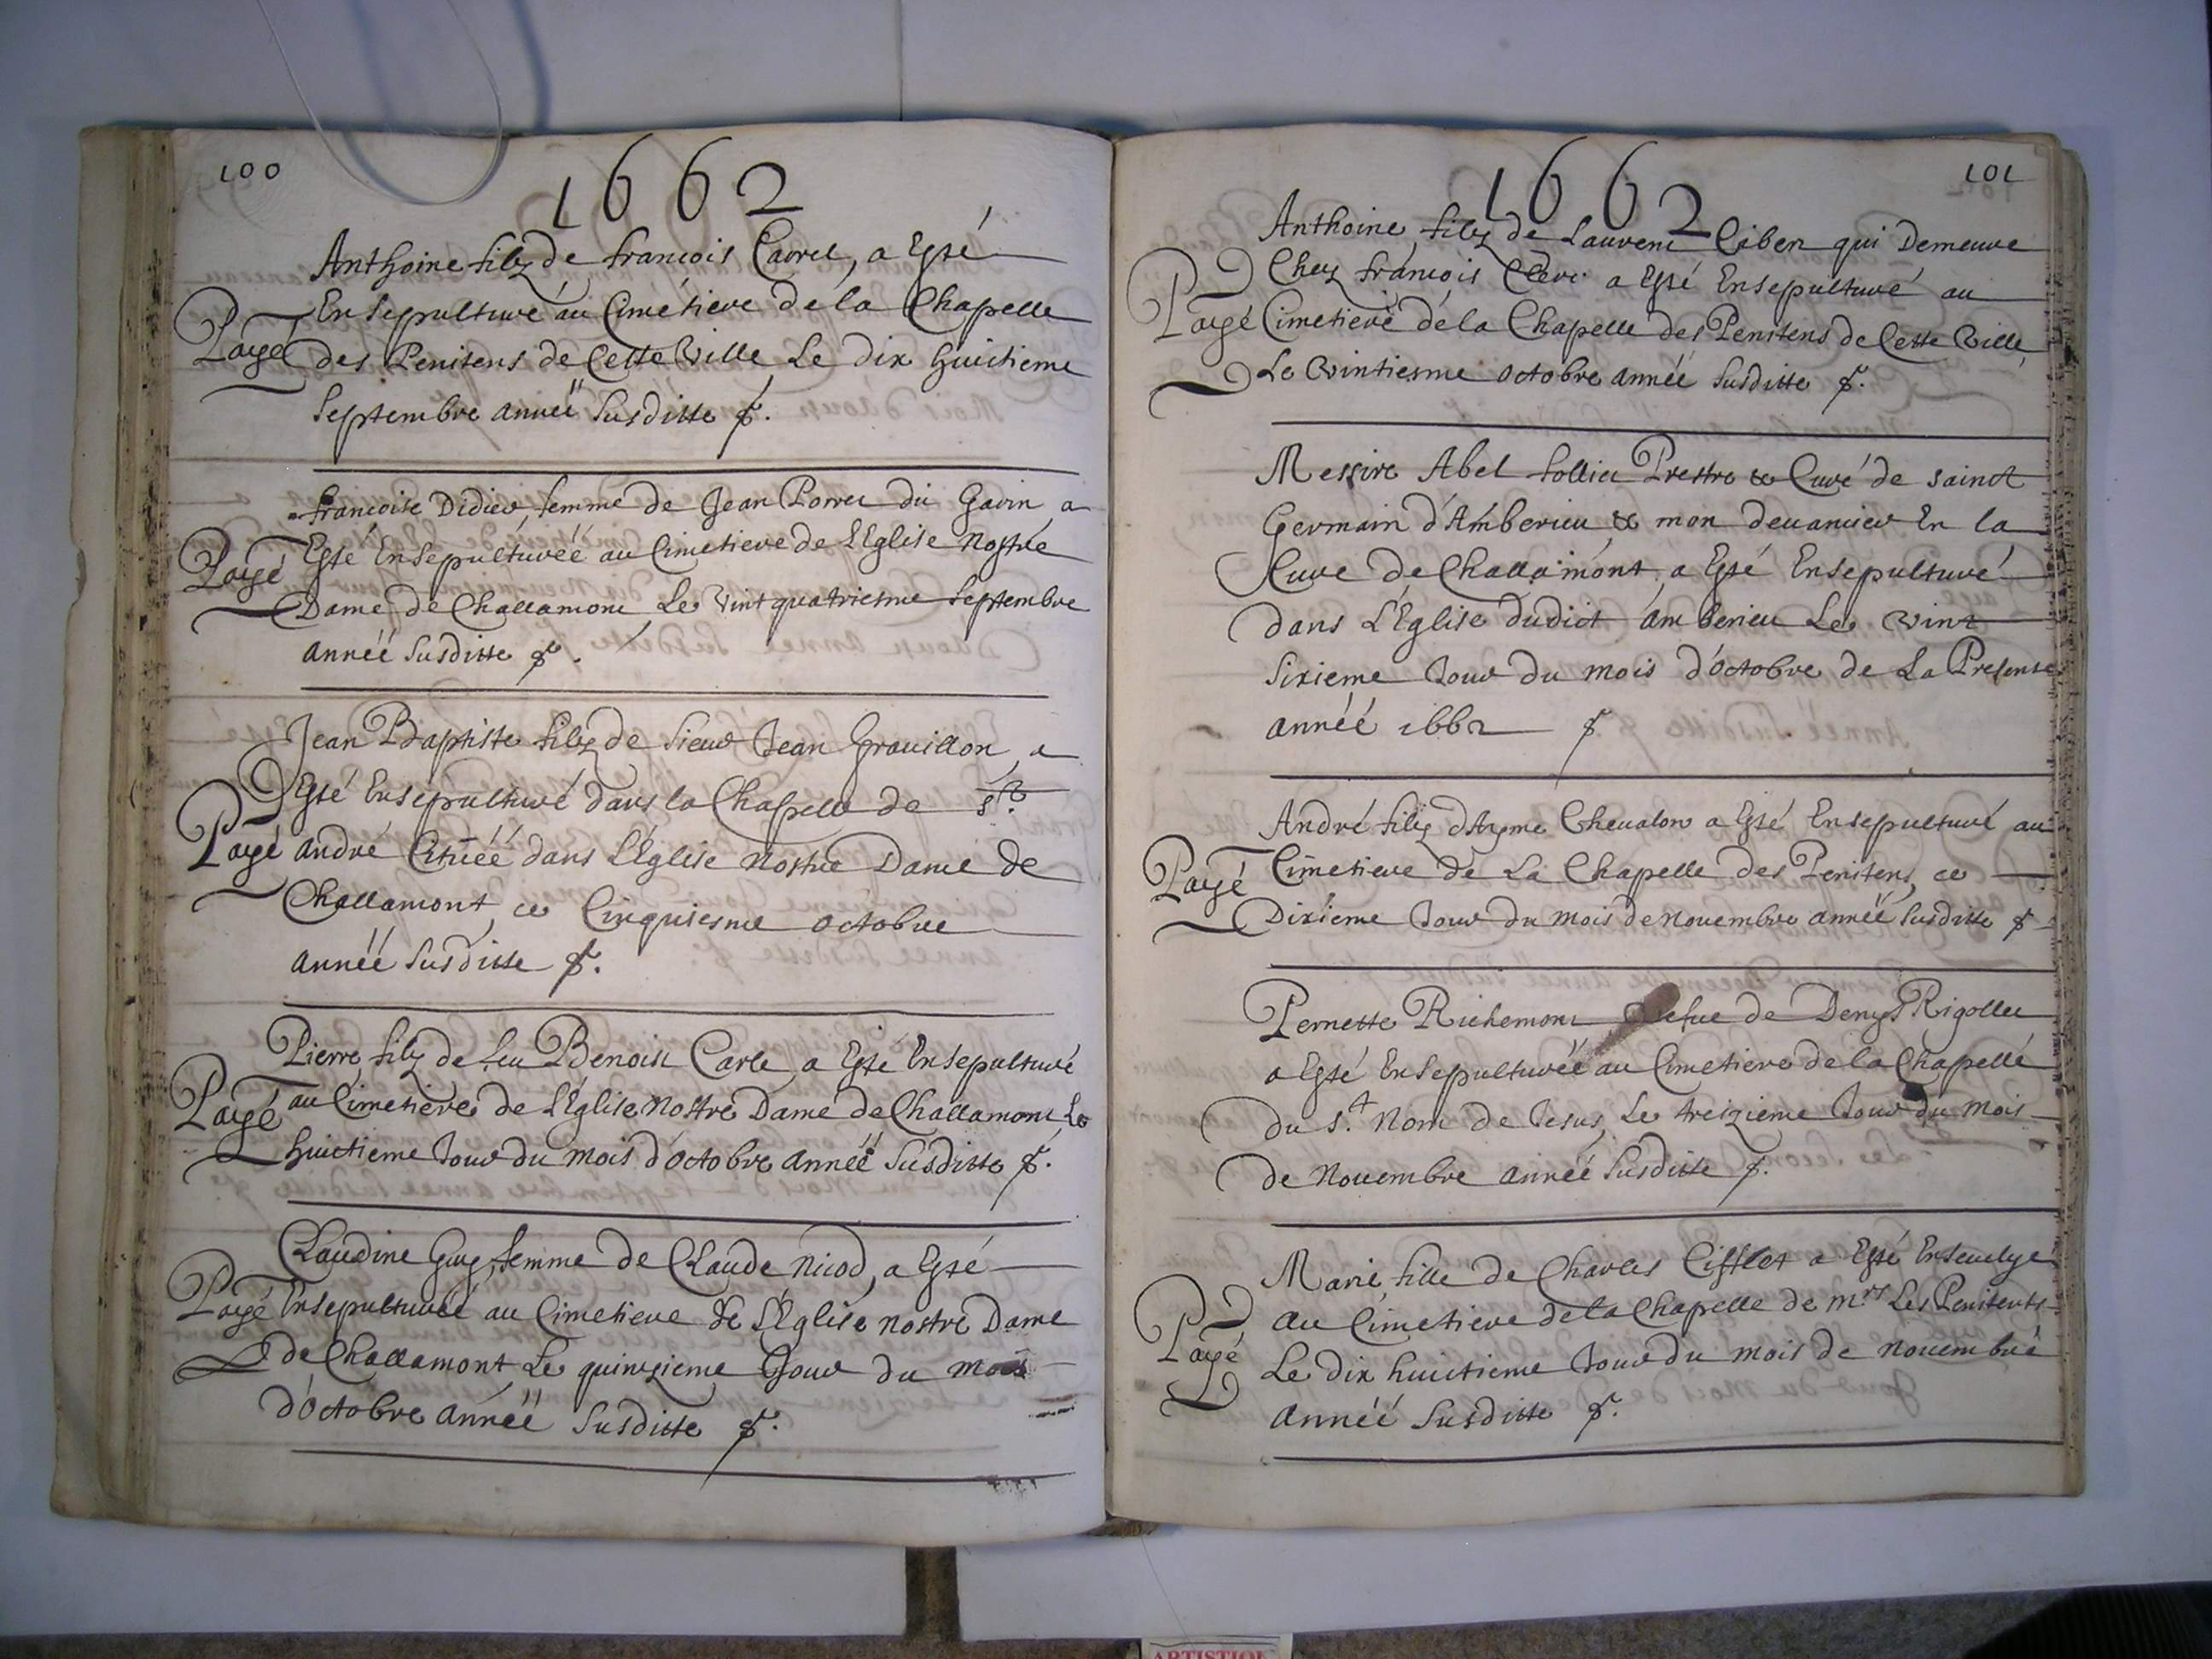 100
1662
Anthoine filz de francois Carrel, a Esté
Ensepulturé au Cimétiere dé la Chapelle
Payé des Penitens de Cette Ville Le dix huictieme
Septembre année susditte
francoise Didier, femme de Jean Porret du Gavin a
Payé Esté Ensepulturéé au Cimetiere de L'Eglise Nostre
Dame de Challamont Le Vint quatriesme Septembre
année susditte
Jean Baptiste filz de sieur Jean Grauillon, a
Esté Ensepulturé dans la Chapelle de St.
Payé André Cituéé dans L'Église Nostre Dame de
Challamont, ce Cinquiesme octobre
année susditte
Pierre, filz de feu Benoist Carle, a Esté Ensepulturé
Payé au Cimetiere de L'Église Nostre Dame de Challamont Le
huictieme Jour du mois d'octobre année susditte
Claudine Guy, femme de Claude Nicod, a Esté
Payé Ensepulturéé au Cimetiere de L'Église nostre Dame
de Challamont Le quinzieme Jour du mois
d'octobre année susditte
101
1662
Anthoine, filz de Laurent Ciber qui Demeure
Chez francois Clerc a Esté Ensepulturé au
Payé Cimetiere dé la Chapelle des Penitens de Cette Ville
Le Vintiesme octobre année susditte
Messire Abel follier Prestre & Curé de sainct
Germain d'Amberieu & mon deuancier En la
Cure de Challamont, a Esté Ensepulturé
dans L'Église dudict Amberieu Le Vint
sixieme Jour du mois d'octobre de La Presente
annéé 1662
André filz d'Ayme Cheualon a Esté Ensepulturé au
Payé Cimetiere de La Chapelle des Penitens, ce
Dixieme Jour du mois de nouembre année susditte
Pernette Richemont Vefue de Denys Rigollet
a Esté Ensepulturéé au Cimetiere de la Chapelle
du St. Nom de Jesus, Le treizieme Jour du mois
de nouembre année susditte
Marie, fille de Charles Cifflet a Esté Enseuelye
au Cimetiere de la Chapelle de Mrs Les Penitents
Payé Le dix huictieme Jour du mois de nouembre
année susditte